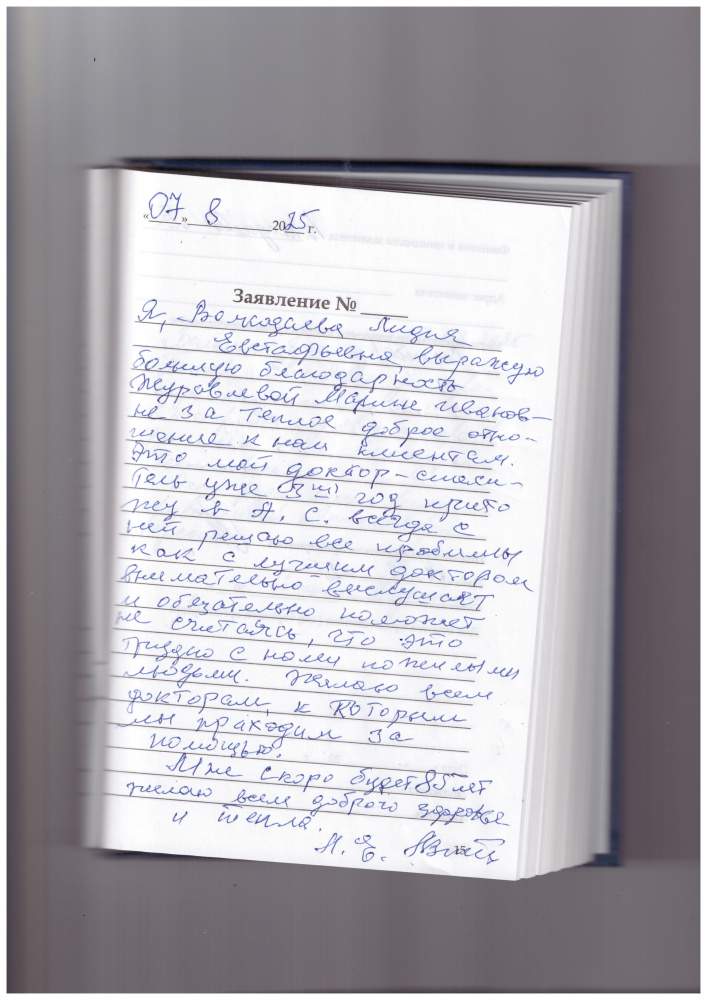 «07» 8 2025 г.
Заявление № ____
Я, Лидия
Евстафьевна, выражую
большую благодарность
Журавлевой Марине Иванов-
не за теплое доброе отно-
шение к нам клиентам.
Это мой доктор-спаси-
тель уже 3ий год
в А. С. всегда с
ней решаю все проблемы
как с лучшим доктором
внимательно выслушает
и обязательно поможет
не считаясь, что это
трудно с нами пожилыми
людьми. Желаю всем
докторам, к которым
мы приходим за
помощью.
Мне скоро будет 85 лет
желаю всем доброго здоровье
и тепла.
Л. Е.
15